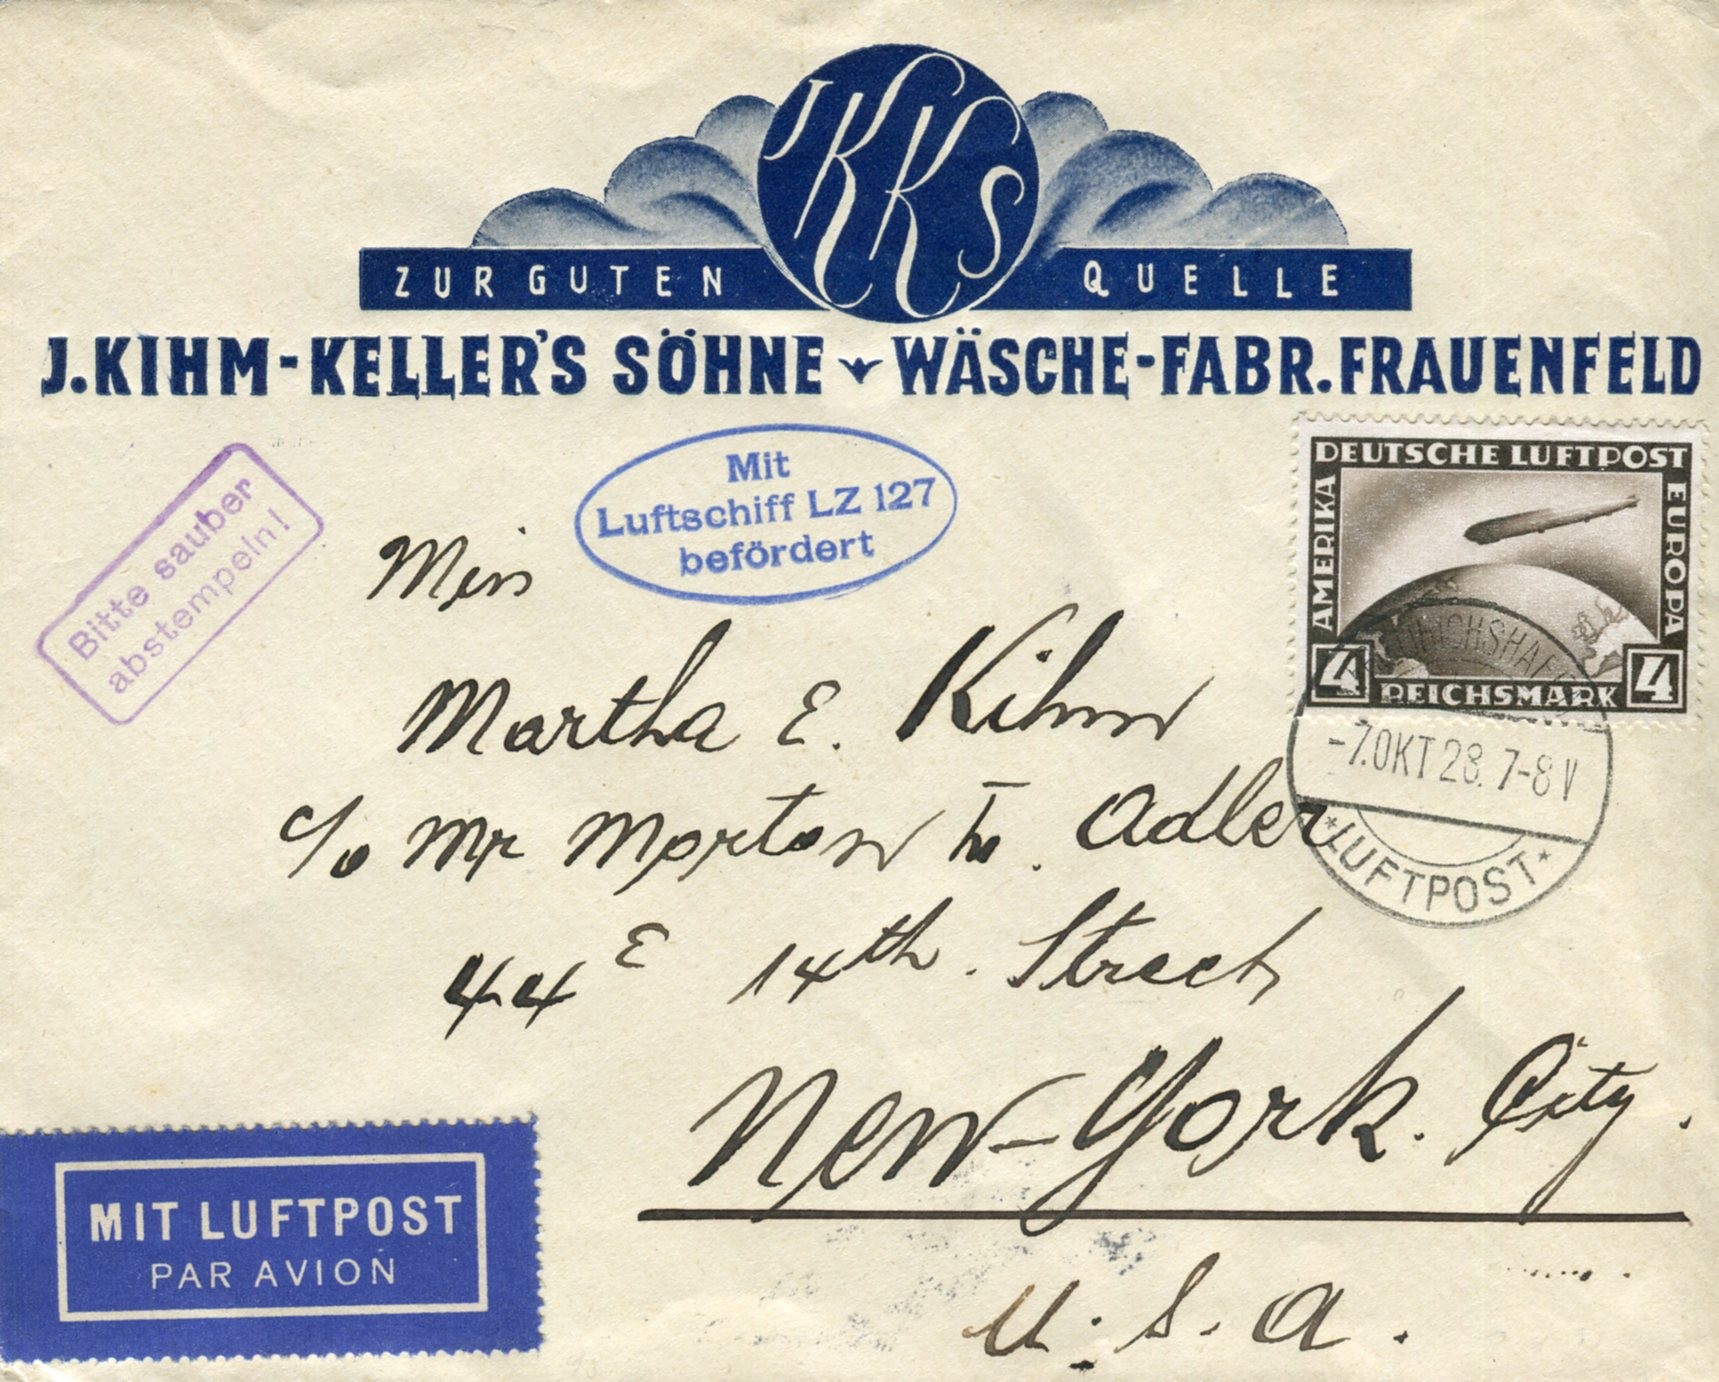 JKKS
ZUR GUTEN QUELLE
J. KIHM-KELLER'S SÖHNE WÄSCHE-FABR. FRAUENFELD
Bitte sauber
abstempeln!
Mit
Luftschiff LZ 127
befördert
DEUTSCHE LUFTPOST
AMERIKA
EUROPA
4 REICHSMARK 4
-7.OKT 28. 7-8 V
*LUFTPOST*
Miss
Martha E. Kihm
c/o Mr Morton Adler
44 E 14th. Street
New-York. City.
U.S.A.
MIT LUFTPOST
PAR AVION